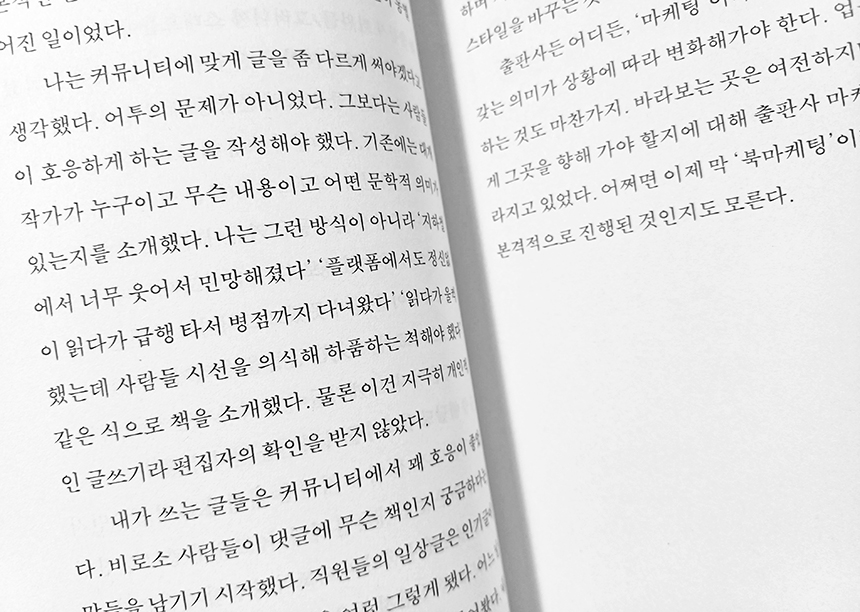 어진 일이었다.
나는 커뮤니티에 맞게 글을 좀 다르게 써야겠다고
생각했다. 어투의 문제가 아니었다. 그보다는 사람들
이 호응하게 하는 글을 작성해야 했다. 기존에는 대개
작가가 누구이고 무슨 내용이고 어떤 문학적 의미가
있는지를 소개했다. 나는 그런 방식이 아니라 ‘지하철
에서 너무 웃어서 민망해졌다’ ‘플랫폼에서도 정신없
이 읽다가 급행 타서 병점까지 다녀왔다’ ‘읽다가 울컥
했는데 사람들 시선을 의식해 하품하는 척해야 했다
같은 식으로 책을 소개했다. 물론 이건 지극히 개인적
인 글쓰기라 편집자의 확인을 받지 않았다.
내가 쓰는 글들은 커뮤니티에서 꽤 호응이
다. 비로소 사람들이 댓글에 무슨 책인지 궁금하다는
말들을 남기기 시작했다. 직원들의 일상글은 인기글이
그렇게 됐다.
하며
스타일을 바꾸는
출판사든 어디든, ‘마케팅
갖는 의미가 상황에 따라 변화해가야 한다. 업
하는 것도 마찬가지. 바라보는 곳은 여전하지만
게 그곳을 향해 가야 할지에 대해 출판사 마케
라지고 있었다. 어쩌면 이제 막 ‘북마케팅’이
본격적으로 진행된 것인지도 모른다.